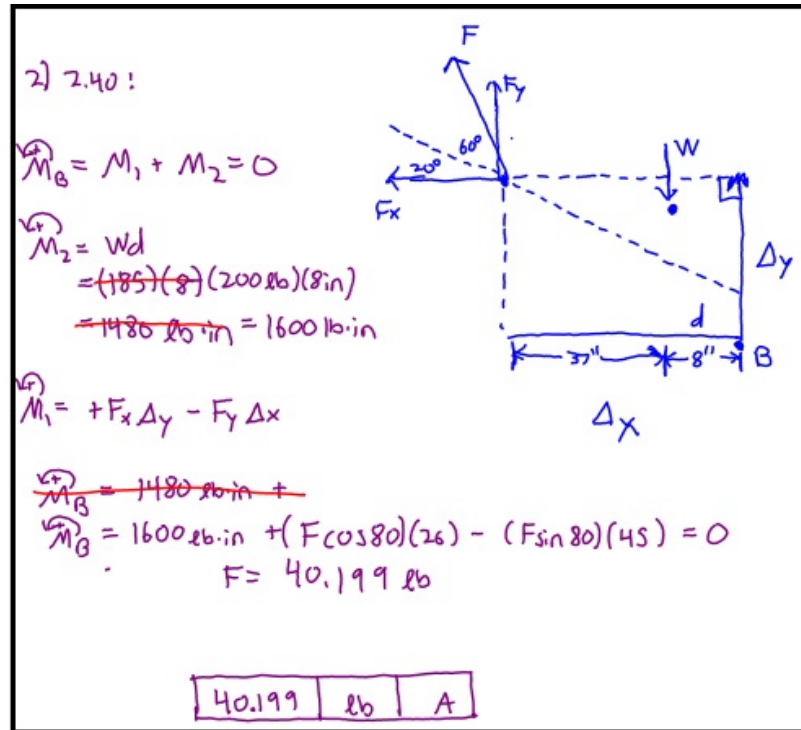 2) 2.40!
M_B = M_1 + M_2 = 0
M_2 = Wd
= (185)(8) (200 lb)(8in)
= 1480 lb·in = 1600 lb·in
M_1 = +F_x Δy - F_y Δx
M_B = 1480 lb·in +
M_B = 1600 lb·in + (F cos80)(26) - (F sin 80)(45) = 0
F = 40.199 lb
40.199 lb A
F
Fy
60°
20°
Fx
W
Δy
d
37"
8"
B
Δx